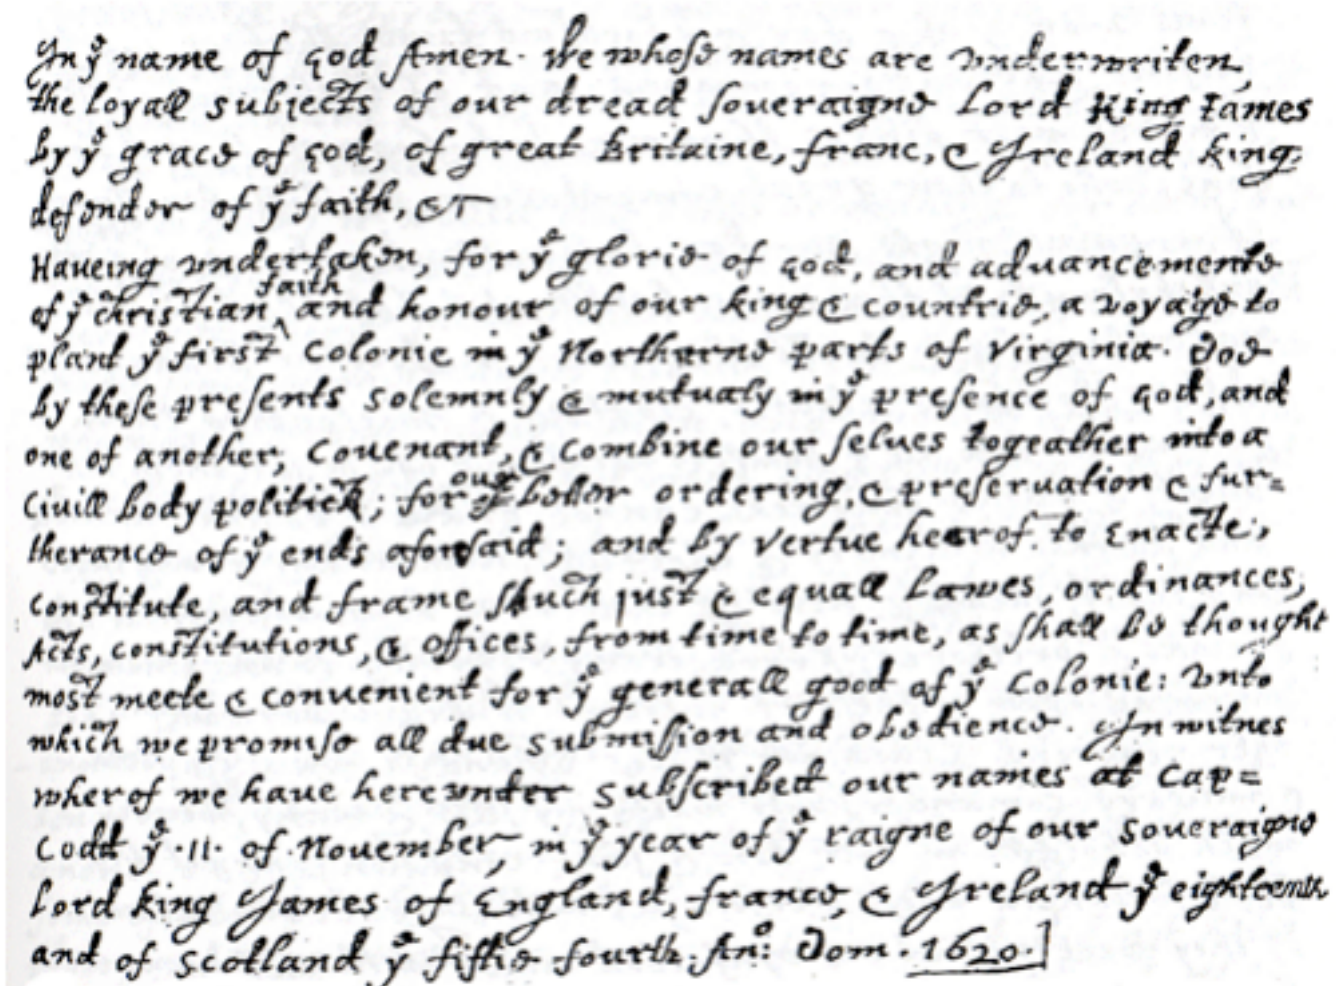 In yͤ name of god Amen. We whose names are vnderwriten,
the loyall subjects of our dread soueraigne Lord King James
by yͤ grace of god, of great Britaine, franc, & Ireland king,
defender of yͤ faith, &c
Haueing vndertaken, for yͤ glorie of god, and aduancemente
of yͤ christian ^faith and honour of our king & countrie, a voyage to
plant yͤ first colonie in yͤ Northerne parts of Virginia. Doe
by these presents solemnly & mutualy in yͤ presence of god, and
one of another, couenant, & combine our selues togeather into a
Ciuill body politick; for our better ordering, & preseruation & fur=
therance of yͤ ends aforesaid; and by vertue hearof to Enacte,
constitute, and frame shuch just & equall Lawes, ordinances,
Acts, constitutions, & offices, from time to time, as shall be thought
most meete & conuenient for yͤ generall good of yͤ Colonie: vnto
which we promise all due submission and obedience. In witnes
wherof we haue herevnder subscribed our names at Cap=
Codd yͤ .11. of Nouember, in yͤ year of yͤ raigne of our soueraigne
Lord king James of England, france, & Ireland yͤ eighteenth
and of scotland yͤ fiftie fourth. An͒: Dom. 1620.]